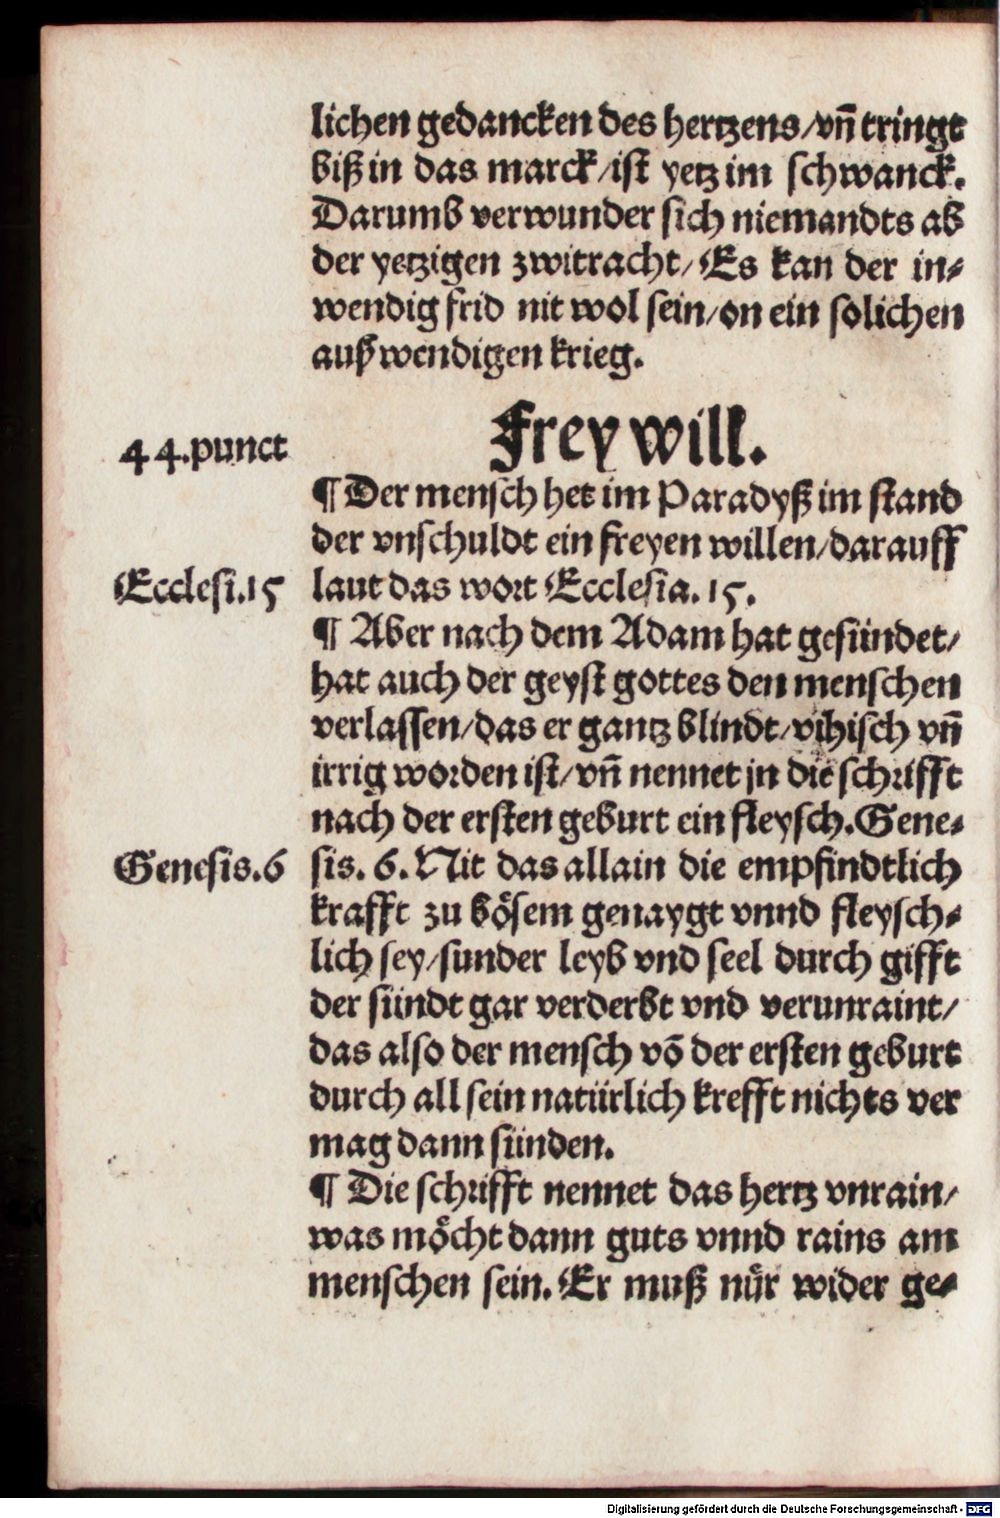 lichen gedancken des hertzens/vñ tringt
biß in das marck/ist yetz im schwanck.
Darumb verwunder sich niemandts ab
der yetzigen zwitracht/Es kan der in⸗
wendig frid nit wol sein/on ein solichen
außwendigen krieg.
Frey will.
44.punct
¶ Der mensch het im Paradyß im stand
der vnschuldt ein freyen willen/darauff
Ecclesi.15
laut das wort Ecclesia.15.
¶ Aber nach dem Adam hat gesündet/
hat auch der geyst gottes den menschen
verlassen/das er gantz blindt/vihisch vñ
irrig worden ist/vñ nennet jn die schrifft
nach der ersten geburt ein fleysch.Gene⸗
Genesis.6
sis.6.Nit das allain die empfindtlich
krafft zu bösem genaygt vnnd fleysch⸗
lich sey/sunder leyb vnd seel durch gifft
der sündt gar verderbt vnd verunraint/
das also der mensch võ der ersten geburt
durch all sein natürlich krefft nichts ver
mag dann sünden.
¶ Die schrifft nennet das hertz vnrain/
was möcht dann guts vnnd rains am
menschen sein.Er muß nür wider ge⸗
Digitalisierung gefördert durch die Deutsche Forschungsgemeinschaft - DFG